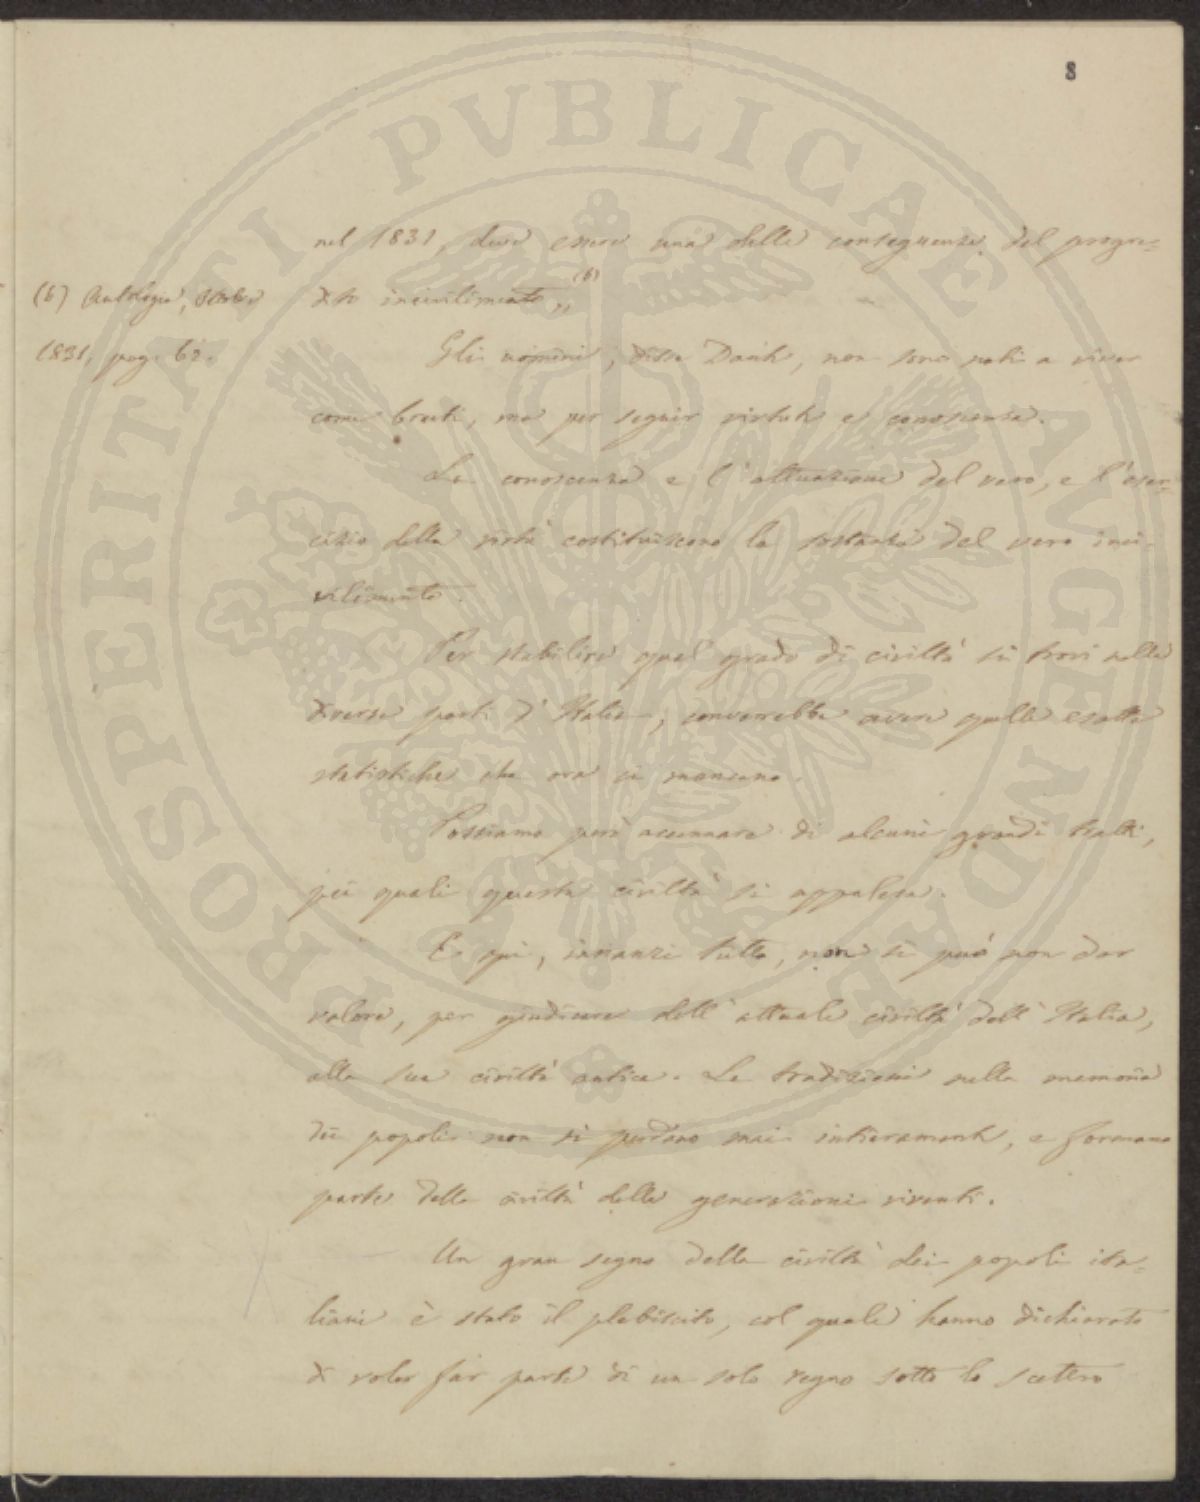 8
nel 1831, deve essere una delle conseguenze del progre=
dito incivilimento,, (6)
(6) Antologia, Ottobre
1831, pag. 62.
Gli uomini, disse Dante, non sono nati a viver
come bruti, ma per seguir virtute e conoscenza.
La conoscenza e l'attuazione del vero, e l'eser=
cizio della virtù costituiscono la sostanza del vero inci=
vilimento.
Per stabilire qual grado di civiltà si trovi nelle
diverse parti d'Italia, converrebbe avere quelle esatte
statistiche che ora ci mancano.
Possiamo però accennare di alcuni grandi tratti,
pei quali questa civiltà si appalesa.
E qui, innanzi tutto, non si può non dar
valore, per giudicare dell'attuale civiltà dell'Italia,
alla sua civiltà antica. Le tradizioni nella memoria
dei popoli non si perdono mai intieramente, e formano
parte della civiltà delle generazioni viventi.
Un gran segno della civiltà dei popoli ita=
liani è stato il plebiscito, col quale hanno dichiarato
di voler far parte di un solo regno sotto lo scettro
PROSPERITATI PVBLICAE AVGENDAE